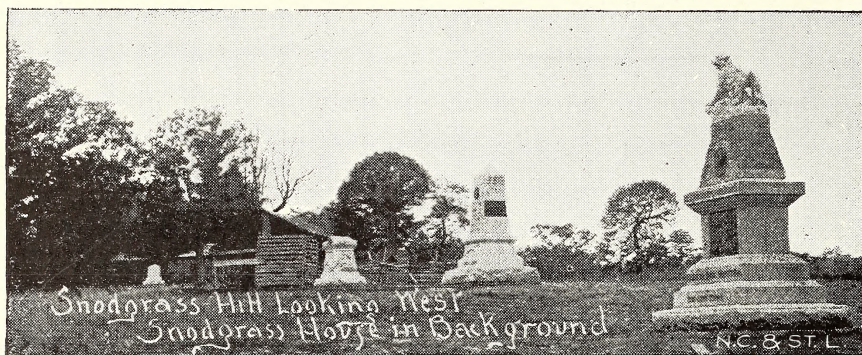 Snodgrass Hill Looking West
Snodgrass House in Background
N.C. & ST. L.